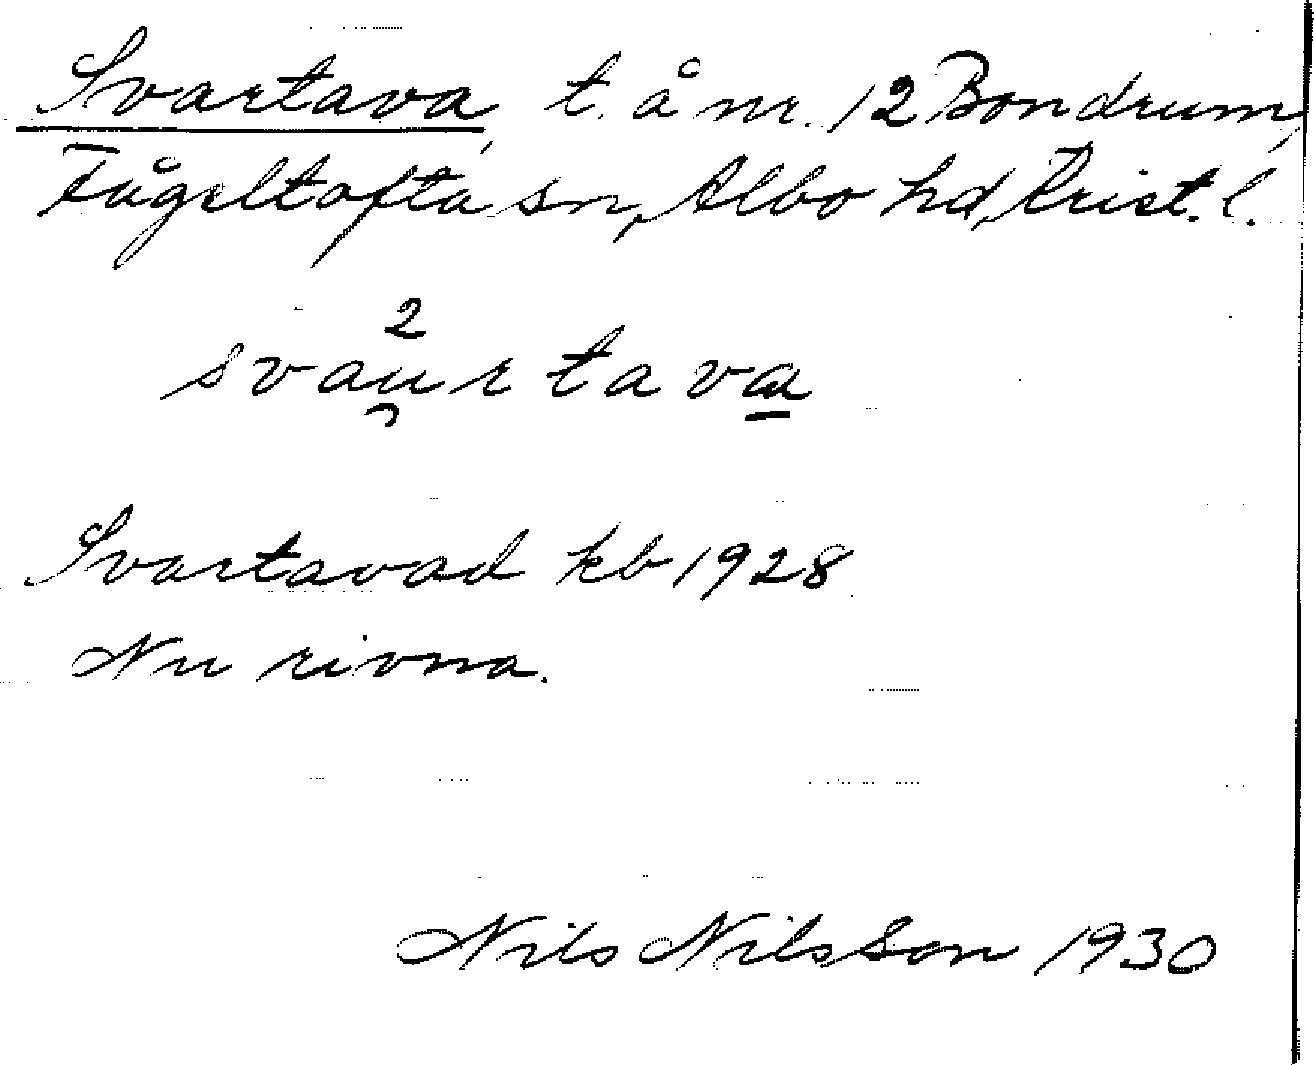 Svartava, t. å nr. 12 Bondrum,
Fågeltofta sn, Albo hd, Krist. l.
2
svau̯rtava̲
Svartavad kb 1928
Nu rivna.
Nils Nilsson 1930